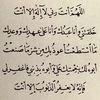 اللَّهُمَّ أَنْتَ رَبِّي لَا إِلَهَ إِلَّا أَنْتَ
خَلَقْتَنِي وَأَنَا عَبْدُكَ وَأَنَا عَلَى عَهْدِكَ وَوَعْدِكَ
مَا اسْتَطَعْتُ أَعُوذُ بِكَ مِنْ شَرِّ مَا صَنَعْتُ
أَبُوءُ لَكَ بِنِعْمَتِكَ عَلَيَّ وَأَبُوءُ بِذَنْبِي فَاغْفِرْ لِي
فَإِنَّهُ لَا يَغْفِرُ الذُّنُوبَ إِلَّا أَنْتَ